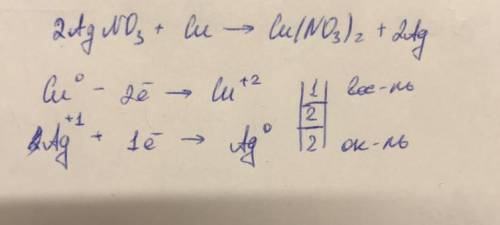 2AgNO₃ + Cu → Cu(NO₃)₂ + 2Ag
Cu⁰ - 2ē → Cu⁺² |1| вос-ль
|2|
Ag⁺¹ + 1ē → Ag⁰ |2| ок-ль